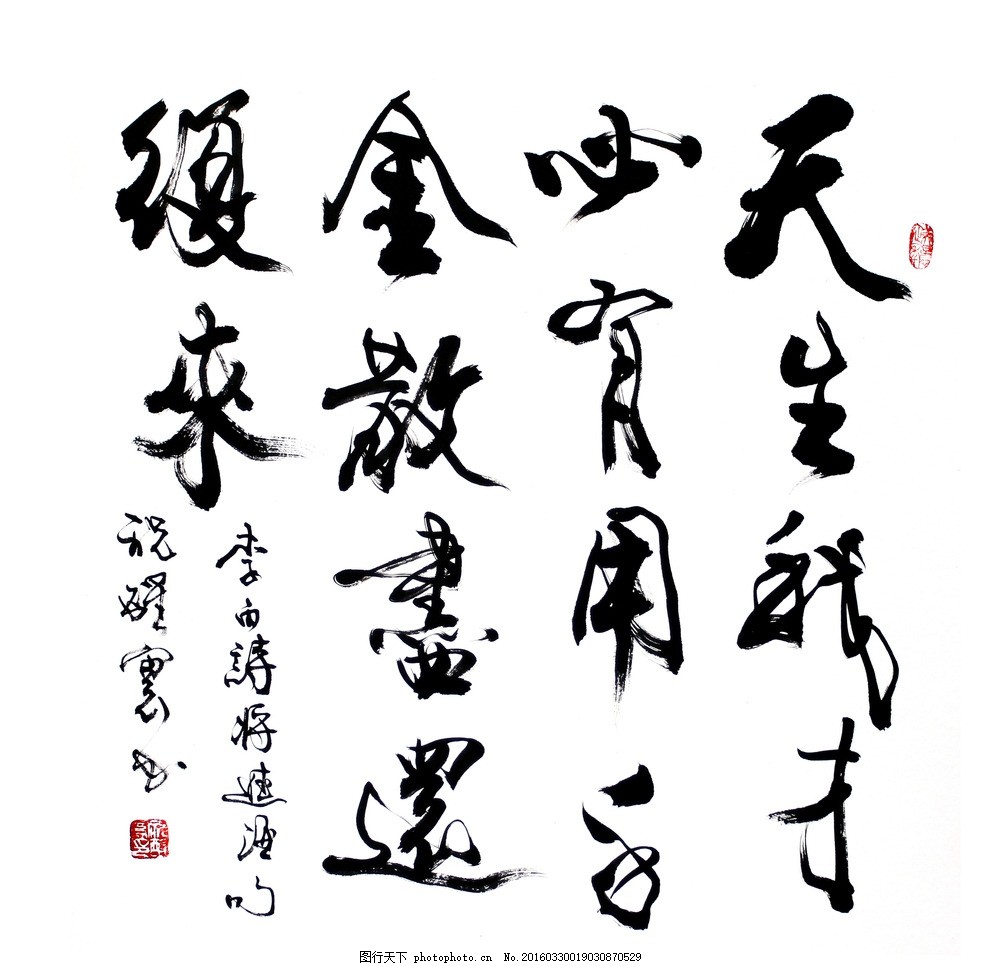 天生我才
必有用千
金散盡還
復來
李白詩將進酒句
祝寰书
图行天下 photophoto.cn No.20160330019030870529